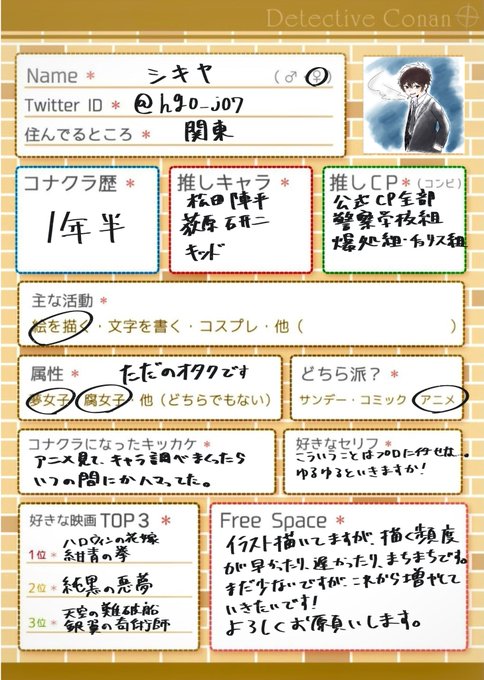 Detective Conan
Name * シキヤ (♂ ♀)
Twitter ID * @hgo_j07
住んでるところ * 関東
コナクラ歴 *
1年半
推しキャラ *
松田陣平
萩原研二
キッド
推しCP * (コンビ)
公式CP全部
警察学校組
爆処組・イリス組
主な活動 *
絵を描く・文字を書く・コスプレ・他( )
属性 * ただのオタクです
夢女子・腐女子・他(どちらでもない)
どちら派? *
サンデー・コミック・アニメ
コナクラになったキッカケ *
アニメ見て、キャラ調べまくったら
いつの間にかハマってた。
好きなセリフ *
こういうことはプロに任せな…。
ゆるゆるといきますか!
好きな映画 TOP3 *
ハロウィンの花嫁
1位 * 紺青の拳
2位 * 純黒の悪夢
天空の難破船
3位 * 銀翼の奇術師
Free Space *
イラスト描いてますが、描く頻度
が早かったり、遅かったり、まちまちです。
まだ少ないですが、これから増やして
いきたいです!
よろしくお願いします。